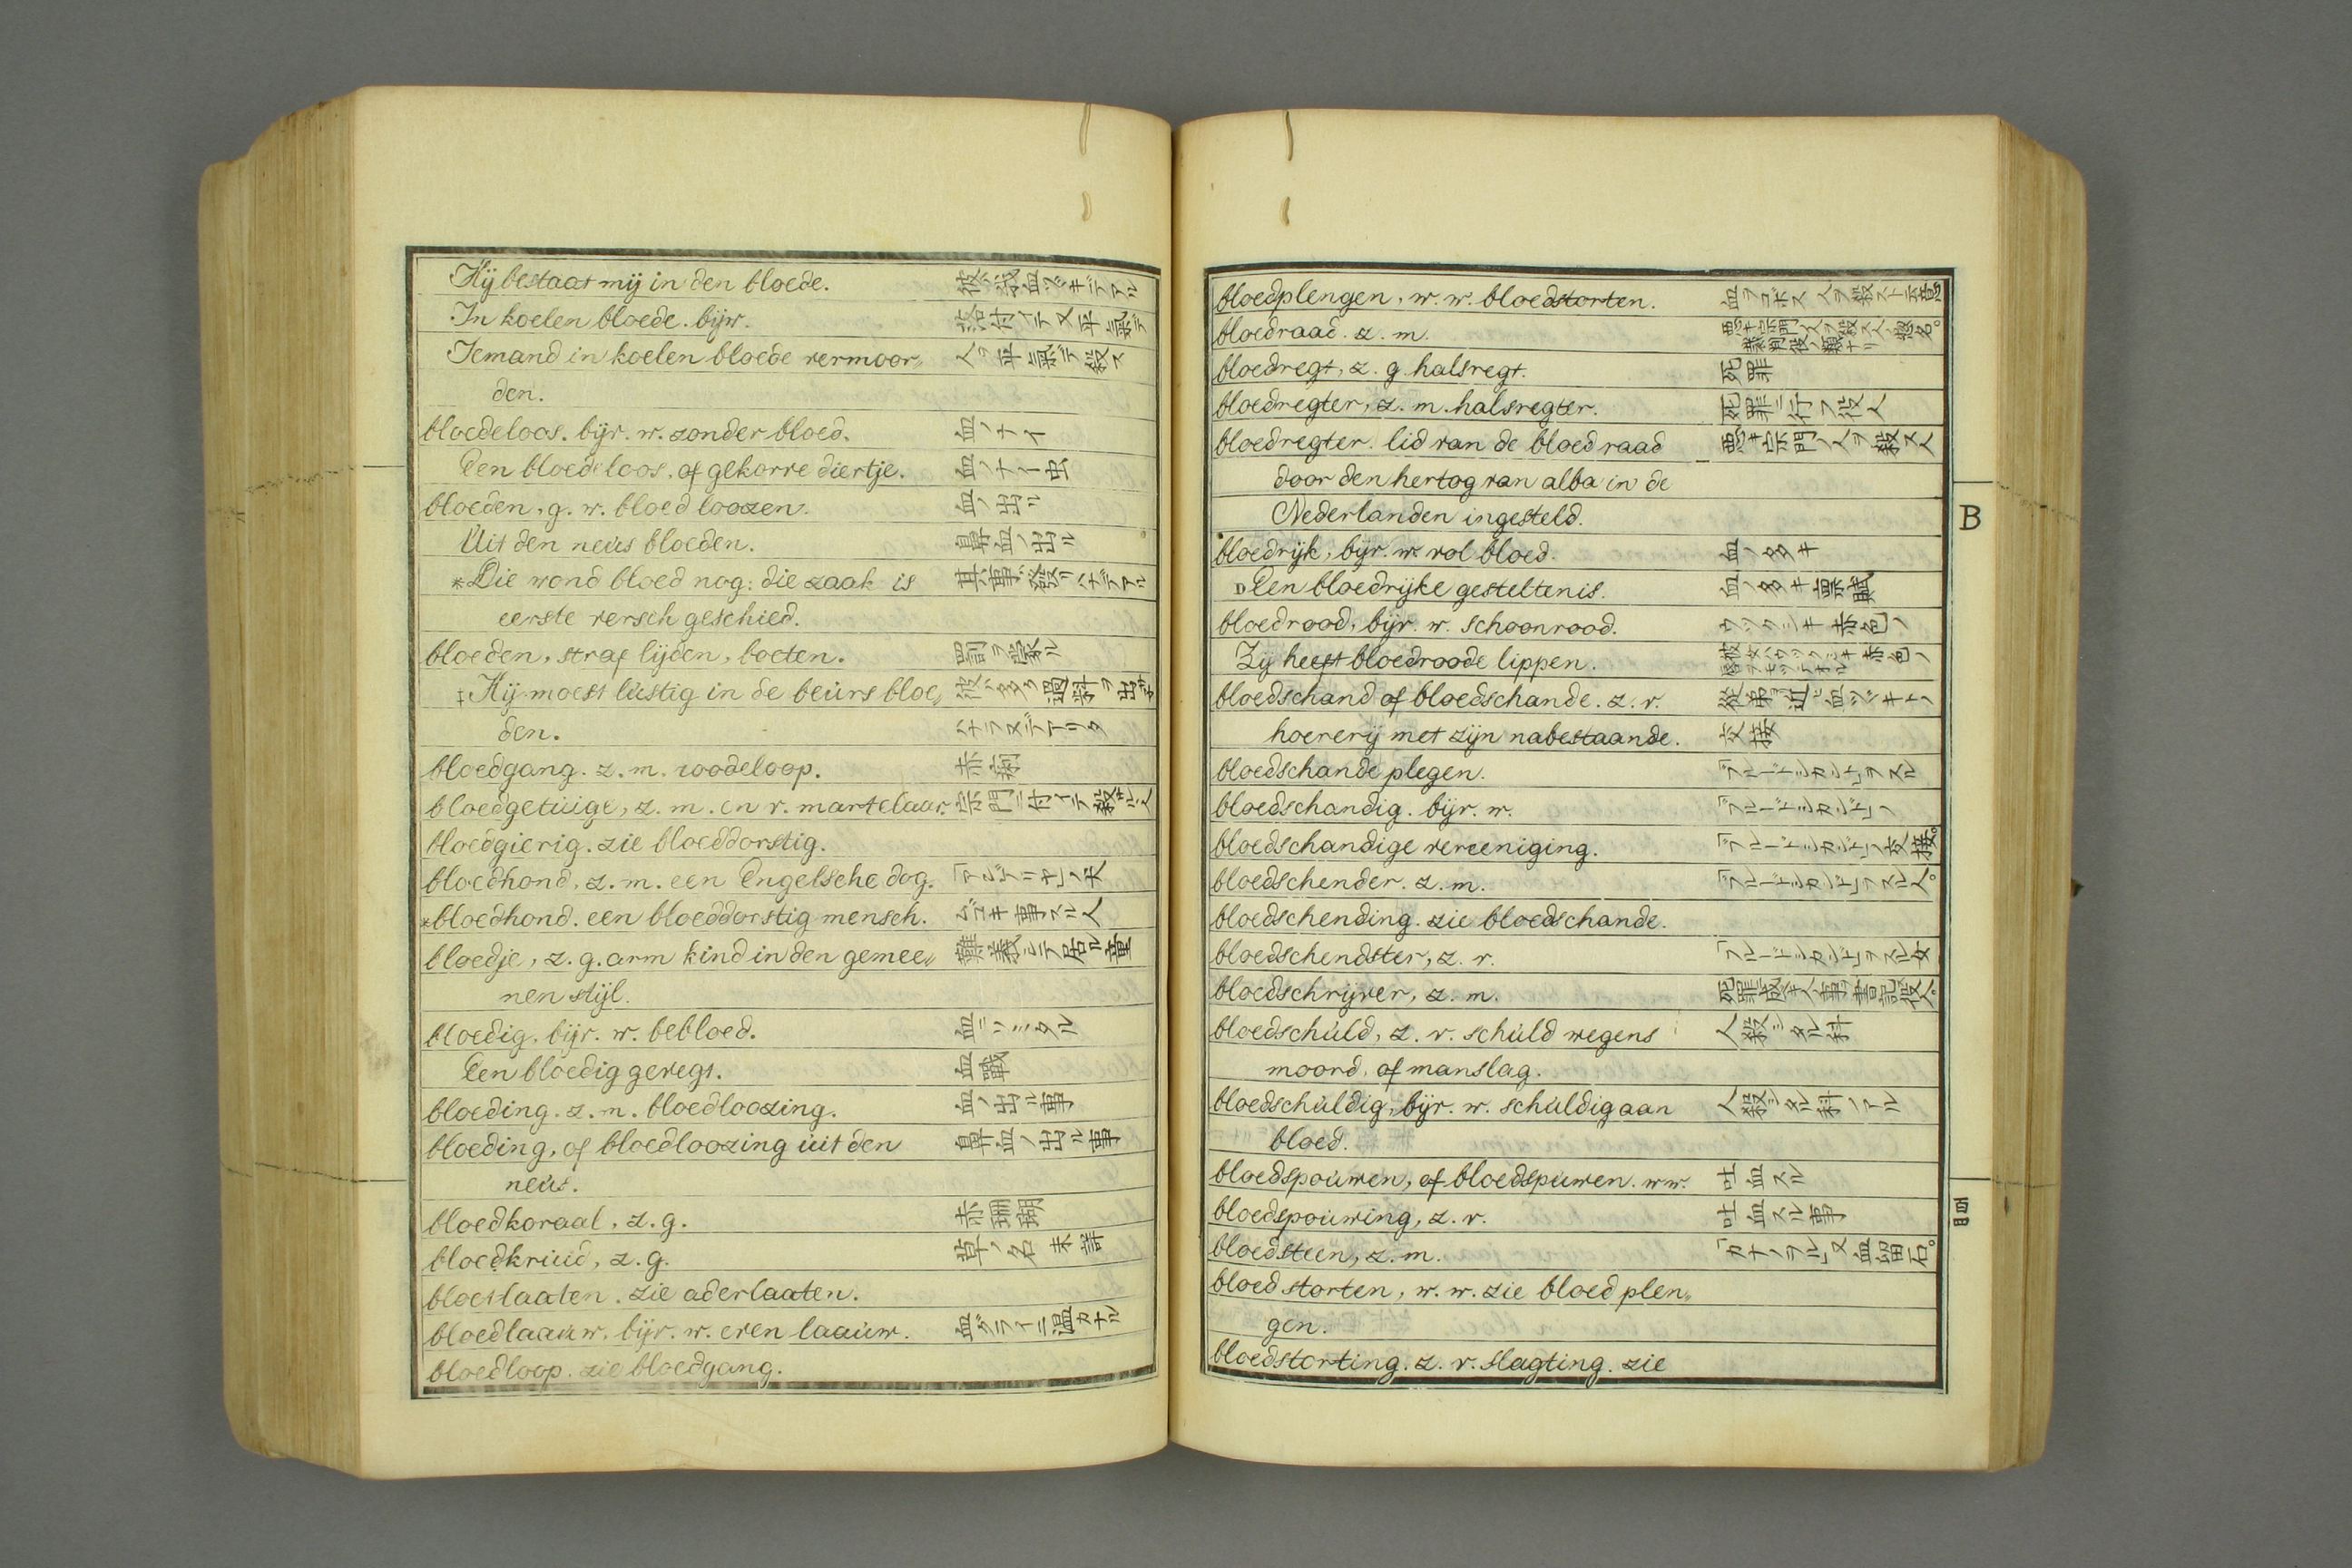 Hij bestaat mij in den bloede. 彼ハ我血ツヾキデアル
In koelen bloede. bijv. 落付イテ又平氣デ
Iemand in koelen bloede vermoor„ 人ヲ平氣デ殺ス
den.
bloedeloos. bijv. w. zonder bloed. 血ノナイ
Een bloedeloos, of gekorve diertje. 血ノナイ虫
bloeden, g. w. bloed loozen. 血ノ出ル
Uit den neus bloeden. 鼻血ノ出ル
*Die wond bloed nog: die zaak is
eerste versch geschied.
bloeden, straf lijden, boeten. 罰ヲ蒙ル
‡Hij moest lustig in de beurs bloe„ 彼ハ多ク過料ヲ出サ子
den. バナラヌデアリタ
bloedgang. z. m. roodeloop. 赤痢
bloedgetuige, z. m. en v. martelaar. 宗門ニ付イテ殺サルヽ人
bloedgierig. zie bloeddorstig.
bloedhond, z. m. een Engelsche dog.
*bloedhond. een bloeddorstig mensch. ムゴキ事スル人
bloedje, z. g. arm kind in den gemee„ 難義シテ居ル童
nen stijl.
bloedig, bijv. w. bebloed. 血ニソミタル
Een bloedig gevegt. 血戰
bloeding. z. m. bloedloozing. 血ノ出ル事
bloeding, of bloedloozing uit den 鼻血ノ出ル事
neus.
bloedkoraal, z. g. 赤珊瑚
bloedkruid, z. g. 草ノ名 未詳
bloetlaaten. zie aderlaaten.
bloedlaauw, bijv. w. even laauw. 血グライニ温カナル
bloedloop. zie bloedgang.
bloedplengen, w. w. bloedstorten. 血ヲコボス 人ヲ殺スト云意
bloedraad. z. m. 悪キ宗門ノ人ヲ殺ス人ノ惣名。
bloedregt, z. g. halsregt. 死罪
bloedregter, z. m. halsregter. 死罪ニ行フ役人
bloedregter. lid van de bloedraad 悪キ宗門ノ人ヲ殺ス人
door den hertog van alba in de
Nederlanden ingesteld.
B
bloedrijk, bijv. w. vol bloed. 血ノ多キ
Een bloedrijke gesteltenis. 血ノ多キ禀賦
bloedrood, bijv. w. schoonrood. ウツクシキ赤色ノ
Zij heeft bloedroode lippen. 彼女ハウツクシキ赤色ノ唇ヲモツテオル
bloedschand of bloedschande. z. v. 從弟ヨリ近ヒ血ツヾキトノ
hoererij met zijn nabestaande. 交接
bloedschande plegen. 「ブルードシカンド」ヲスル
bloedschandig. bijv. w. 「ブルードシカンド」ノ
bloedschandige vereeniging. 「ブルードシカンド」ノ交接。
bloedschender. z. m. 「ブルードシカンド」ヲスル人。
bloedschending. zie bloedschande.
bloedschendster, z. v. 「ブルードシカンド」ヲスル女
bloedschrijver, z. m.
bloedschuld, z. v. schuld wegens 人殺シタル科
moord, of manslag.
bloedschuldig, bijv. w. schuldig aan 人殺シタル科ノアル
bloed.
bloedspouwen, of bloedspuwen. ww. 吐血スル
bloedspouwing, z. v. 吐血スル事
bloedsteen, z. m. 「カナノヲル」又血留石。
bloedstorten, w. w. zie bloed plen„
gen.
bloedstorting. z. v. slagting. zie